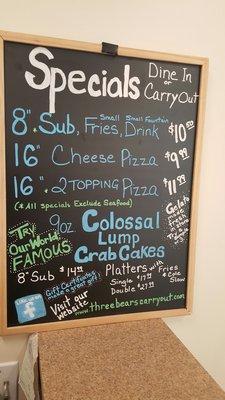 Specials
Dine In
or
Carry Out
8" Sub, Fries, Drink
Small Small Fountain
$10.99
16" Cheese Pizza $9.99
16" 2 Topping Pizza $11.99
(*All specials Exclude Seafood)
Try
Our World
FAMOUS
9oz Colossal
Lump
Crab Cakes
Gelato
made
fresh
in
8" Sub $14.99
Platters with Fries
& Cole
Slaw
Single $17.99
Double $27.99
Gift Certificates
make a great gift!
Like us on
f
Visit our
website
www.threebearscarryout.com